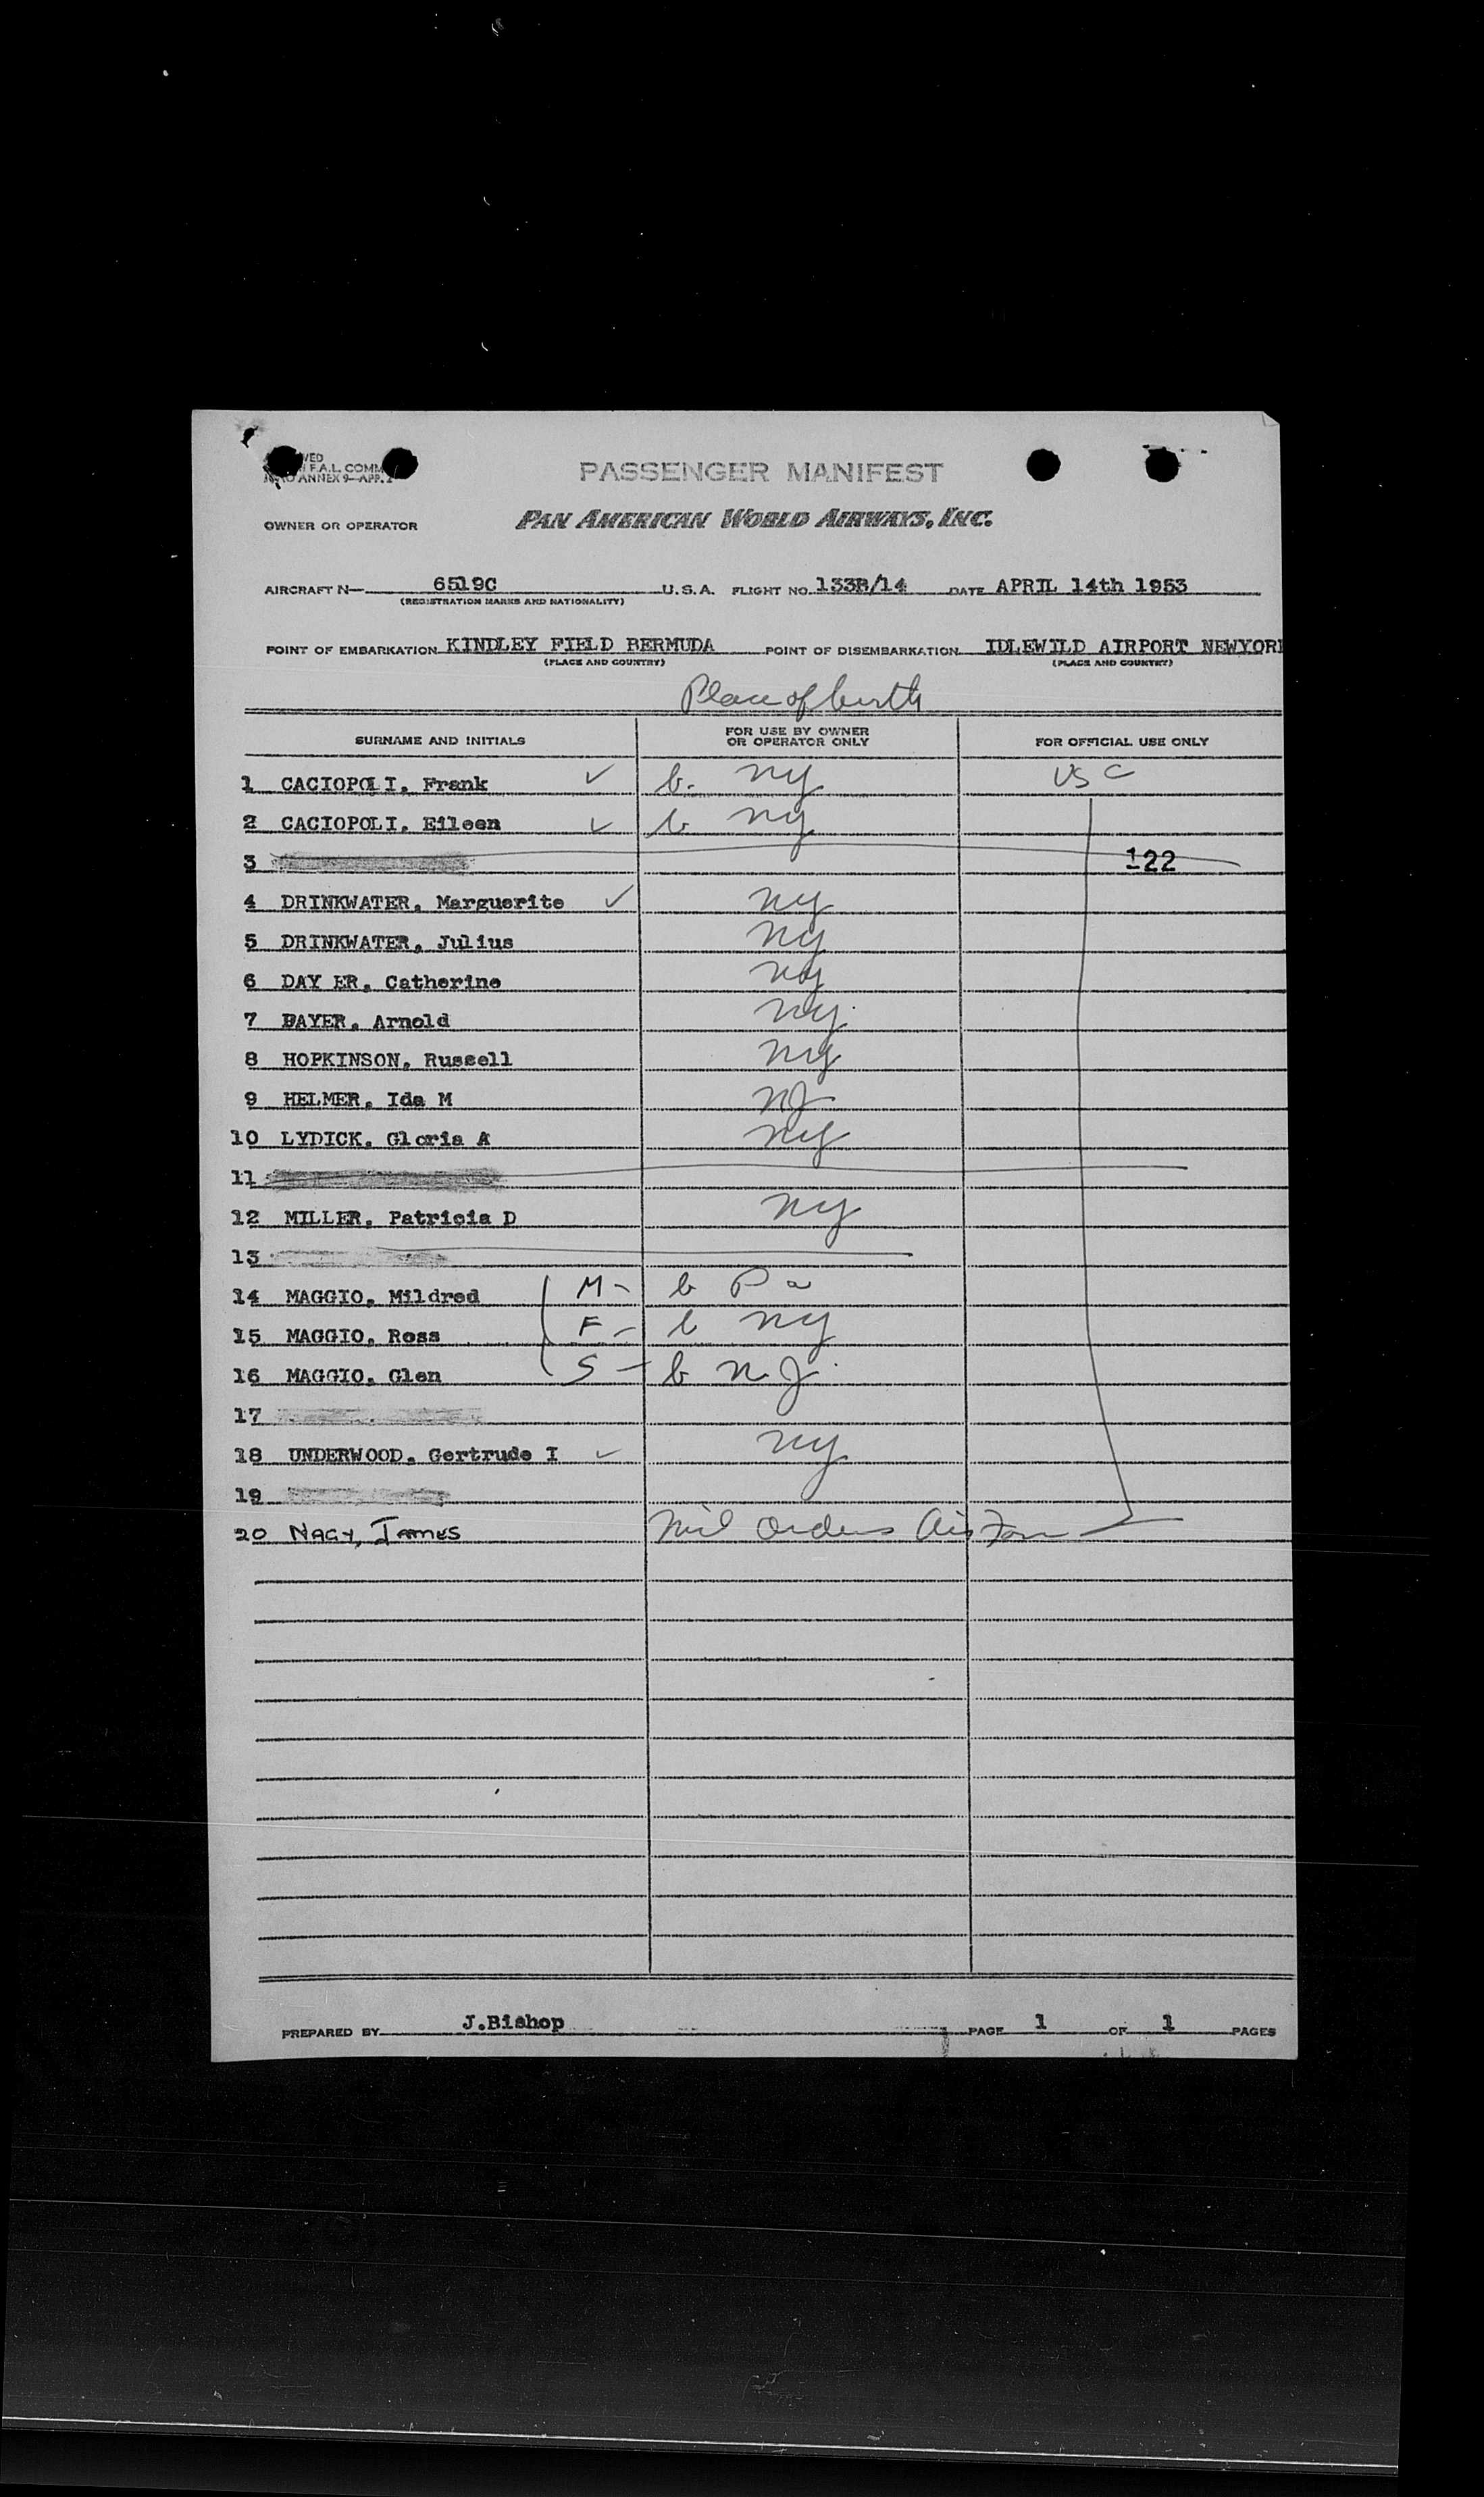 PASSENGER MANIFEST
F.A.L. COMM
ANNEX 9—APP. 2
OWNER OR OPERATOR PAN AMERICAN WORLD AIRWAYS, INC.
AIRCRAFT N— 6519C U.S.A. FLIGHT NO. 133B/14 DATE APRIL 14th 1953
(REGISTRATION MARKS AND NATIONALITY)
POINT OF EMBARKATION KINDLEY FIELD BERMUDA POINT OF DISEMBARKATION IDLEWILD AIRPORT NEWYORK
(PLACE AND COUNTRY) (PLACE AND COUNTRY)
Place of birth
SURNAME AND INITIALS FOR USE BY OWNER OR OPERATOR ONLY FOR OFFICIAL USE ONLY
1 CACIOPOLI, Frank ✓ b. ny USC
2 CACIOPOLI, Eileen ✓ b ny
3 122
4 DRINKWATER, Marguerite ✓ ny
5 DRINKWATER, Julius ny
6 DAY ER, Catherine ny
7 BAYER, Arnold ny
8 HOPKINSON, Russell ny
9 HELMER, Ida M NJ
10 LYDICK, Gloria A ny
11
12 MILLER, Patricia D ny
13
14 MAGGIO, Mildred M - b Pa
15 MAGGIO, Ross F - b ny
16 MAGGIO, Glen S - b n.J.
17
18 UNDERWOOD, Gertrude I ✓ ny
19
20 NAGY, JAMES Mil Orders Air Force
PREPARED BY J.Bishop PAGE 1 OF 1 PAGES